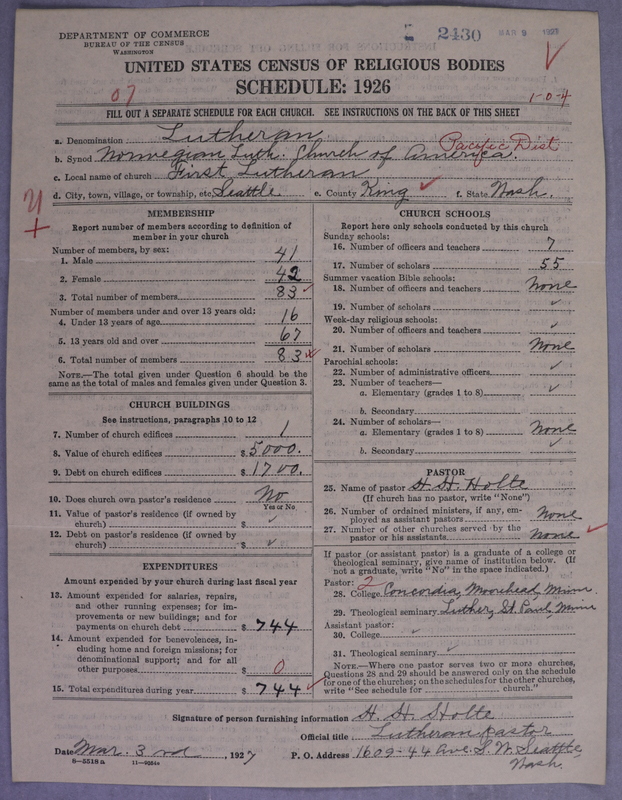 DEPARTMENT OF COMMERCE
BUREAU OF THE CENSUS
WASHINGTON
2430 MAR 9 1927
UNITED STATES CENSUS OF RELIGIOUS BODIES
SCHEDULE: 1926
07
1-0-4
FILL OUT A SEPARATE SCHEDULE FOR EACH CHURCH. SEE INSTRUCTIONS ON THE BACK OF THIS SHEET
a. Denomination Lutheran
Pacific Dist
b. Synod Norwegian Luth. Church of America.
c. Local name of church First Lutheran
d. City, town, village, or township, etc. Seattle e. County King f. State Wash.
MEMBERSHIP
Report number of members according to definition of
member in your church
Number of members, by sex:
1. Male 41
2. Female 42
3. Total number of members 83
Number of members under and over 13 years old:
4. Under 13 years of age 16
5. 13 years old and over 67
6. Total number of members 83
NOTE.—The total given under Question 6 should be
same as the total of males and females given under Question 3.
CHURCH BUILDINGS
See instructions, paragraphs 10 to 12
7. Number of church edifices 1
8. Value of church edifices $ 5000.
9. Debt on church edifices $ 1700.
10. Does church own pastor's residence No
Yes or No
11. Value of pastor's residence (if owned by
church) $ ✓
12. Debt on pastor's residence (if owned by
church) $ ✓
EXPENDITURES
Amount expended by your church during last fiscal year
13. Amount expended for salaries, repairs,
and other running expenses; for im-
provements or new buildings; and for
payments on church debt $ 744
14. Amount expended for benevolences, in-
cluding home and foreign missions; for
denominational support; and for all
other purposes $ 0
15. Total expenditures during year $ 744
CHURCH SCHOOLS
Report here only schools conducted by this church
Sunday schools:
16. Number of officers and teachers 7
17. Number of scholars 55
Summer vacation Bible schools:
18. Number of officers and teachers None
19. Number of scholars ✓
Week-day religious schools:
20. Number of officers and teachers ✓
21. Number of scholars None
Parochial schools:
22. Number of administrative officers ✓
23. Number of teachers—
a. Elementary (grades 1 to 8) ✓
b. Secondary
24. Number of scholars—
a. Elementary (grades 1 to 8) None
b. Secondary ✓
PASTOR
25. Name of pastor H. H. Holte
(If church has no pastor, write "None")
26. Number of ordained ministers, if any, em-
ployed as assistant pastors None
27. Number of other churches served by the
pastor or his assistants None
If pastor (or assistant pastor) is a graduate of a college or
theological seminary, give name of institution below. (If
not a graduate, write "No" in the space indicated.)
Pastor: 2
28. College Concordia, Moorhead, Minn.
29. Theological seminary Luther, St. Paul, Minn
Assistant pastor:
30. College ✓
31. Theological seminary ✓
NOTE.—Where one pastor serves two or more churches,
Questions 28 and 29 should be answered only on the schedule
for one of the churches; on the schedules for the other churches,
write "See schedule for church."
Signature of person furnishing information H. H. Holte
Official title Lutheran Pastor
Date Mar. 3rd, 1927 P. O. Address 1609-44 Ave. S. W. Seattle,
Wash.
8—5518a 11—9264a